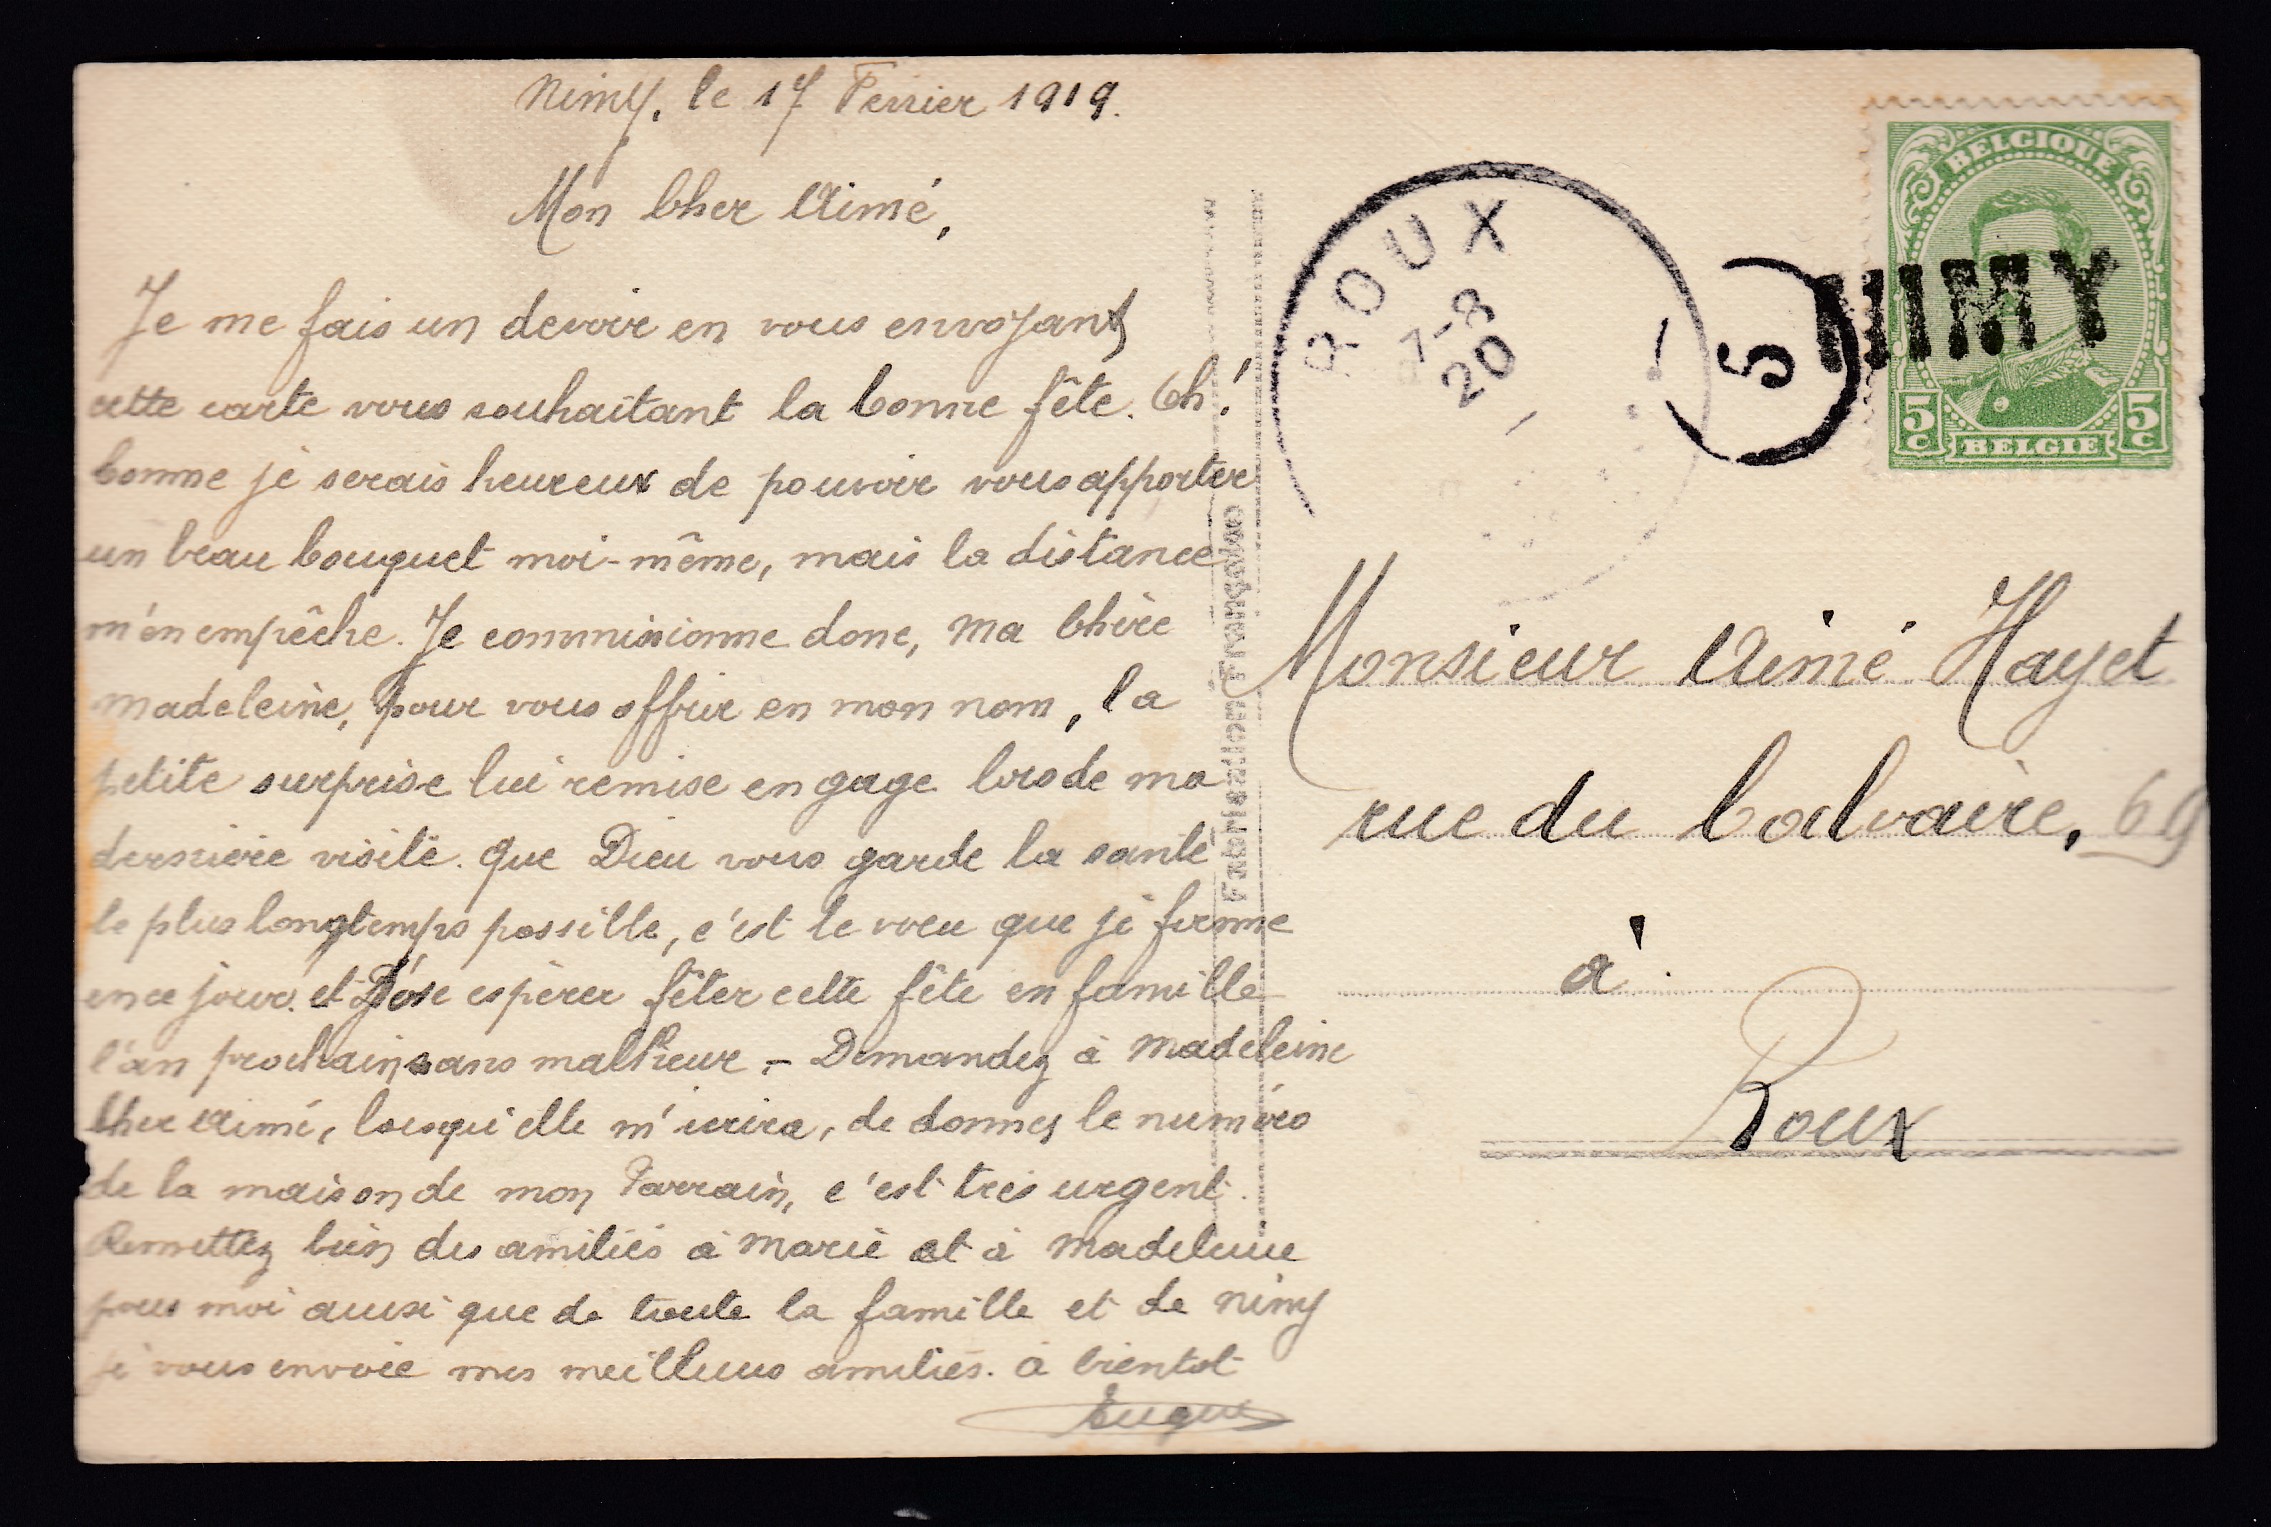 Nimy, le 17 Février 1919.
Mon Cher Aimé,
Je me fais un devoir en vous envoyant
cette carte vous souhaitant la bonne fête. Oh!
comme je serais heureux de pouvoir vous apporter
un beau bouquet moi-même, mais la distance
m'en empêche. Je commissionne donc, ma Chère
Madeleine, pour vous offrir en mon nom, la
petite surprise lui remise en gage lors de ma
dernière visite. Que Dieu vous garde la santé
le plus longtemps possible, c'est le voeu que je forme
en ce jour. et J'ose espérer fêter cette fête en famille
l'an prochain sans malheur. - Demandez à Madeleine
Cher Aimé, lorsqu'elle m'écrira, de donner le numéro
de la maison de mon Parrain, c'est très urgent.
Remettez bien des amitiés à Marie et à Madeleine
pour moi ainsi que de toute la famille et de Nimy
je vous envoie mes meilleurs amitiés. à bientot
Fabrication Française
ROUX
7-8
20
5
NIMY
BELGIQUE
5 C
5 C
BELGIE
Monsieur Aimé Hayet
rue du Calvaire, 69
à
Roux